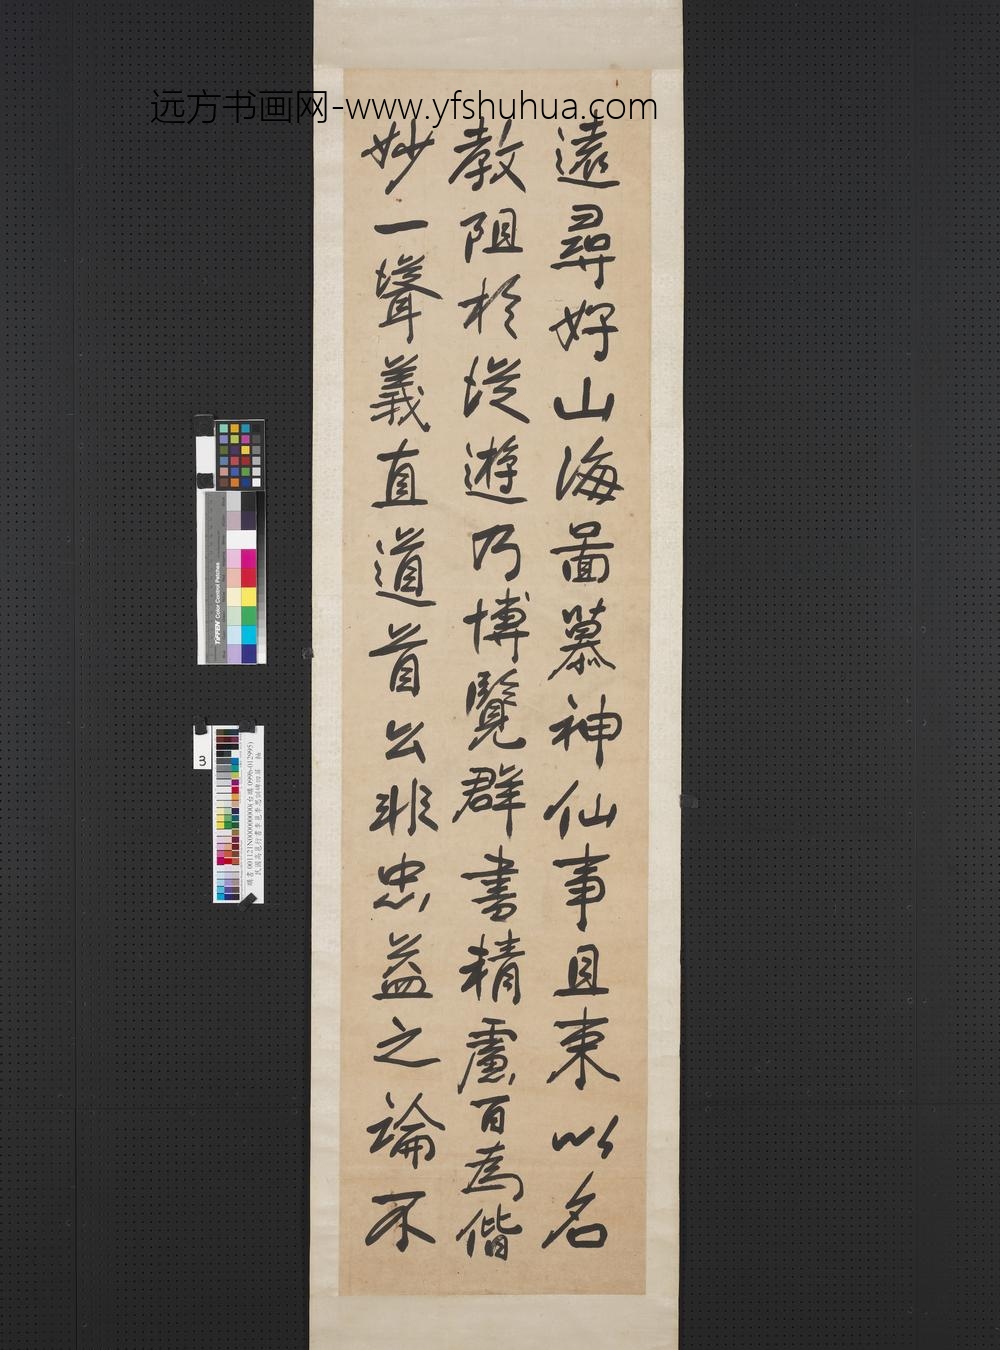 远方书画网-www.yfshuhua.com
遠尋好山海啚慕神仙事且束以名
教阻於從遊乃博覽群書精慮百為偕
妙一聳義直道首公非忠益之論不
TIFFEN Color Control Patches
3